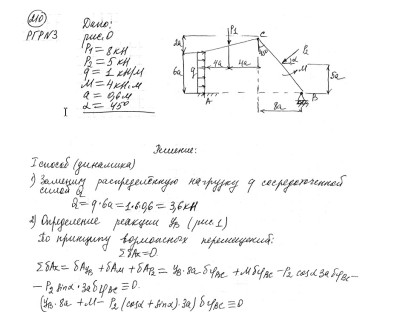 210
РГР N3
Дано:
рис.0
P₁ = 8 кН
P₂ = 5 кН
q = 1 кН/м
M = 4 кН·м
a = 0,6 м
α = 45°
2a
6a
q
4a
4a
P₁
C
P₂
α
M
5a
A
B
8a
Решение:
I способ (динамика)
1) Заменим распределённую нагрузку q сосредоточенной
силой Q
Q = q·6a = 1·6·0,6 = 3,6 кН
2) Определение реакции y_B (рис.1)
По принципу возможных перемещений:
ΣδA_k = 0
ΣδA_k = δA_yB + δA_M + δA_P₂ = y_B·8a δφ_BC + M δφ_BC − P₂ cosα 3a δφ_BC −
− P₂ sinα·3a δφ_BC ≡ 0
(y_B·8a + M − P₂(cosα + sinα)·3a) δφ_BC ≡ 0